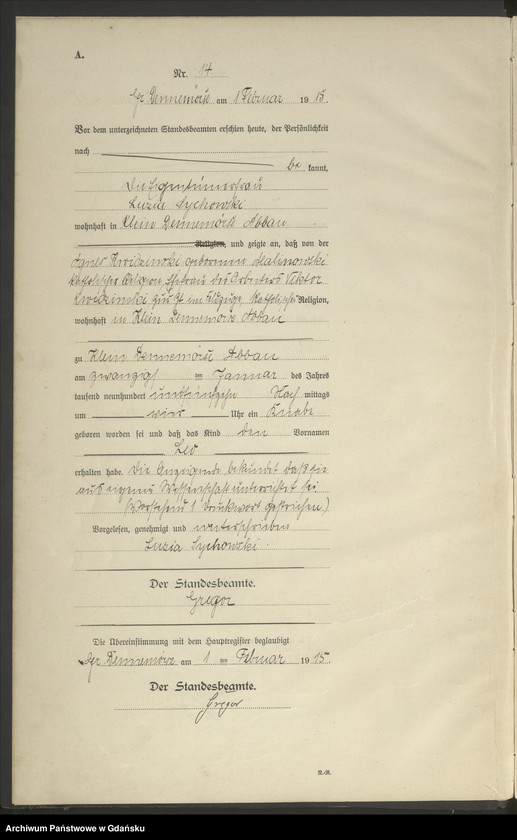 A.
Nr. 14
Gr Dennemörse am 1 Februar 1915.
Vor dem unterzeichneten Standesbeamten erschien heute, der Persönlichkeit
nach be kannt,
die Eigentümerfrau
Luzia Sychowski
wohnhaft in Klein Dennemörse Abbau
Religion, und zeigte an, daß von der
Agnes geborenen Malinowski
katholischer Religion, Ehefrau des Arbeiters Viktor
zur Zt im Feldzuge katholischer Religion,
wohnhaft in Klein Dennemörse Abbau
zu Klein Dennemörse Abbau
am zwanzigsten Januar des Jahres
tausend neunhundert undfünfzehn Nach mittags
um vier Uhr ein Knabe
geboren worden sei und daß das Kind den Vornamen
Leo
erhalten habe. Die Anzeigende bekundet daß sie
aus eigener Wissenschaft unterrichtet sei
(Vorstehend 1 Druckwort gestrichen.)
Vorgelesen, genehmigt und unterschrieben
Luzia Sychowski.
Der Standesbeamte.
Gregor
Die Übereinstimmung mit dem Hauptregister beglaubigt
Gr Dennemörse am 1 ten Februar 1915
Der Standesbeamte.
Gregor
Archiwum Państwowe w Gdańsku